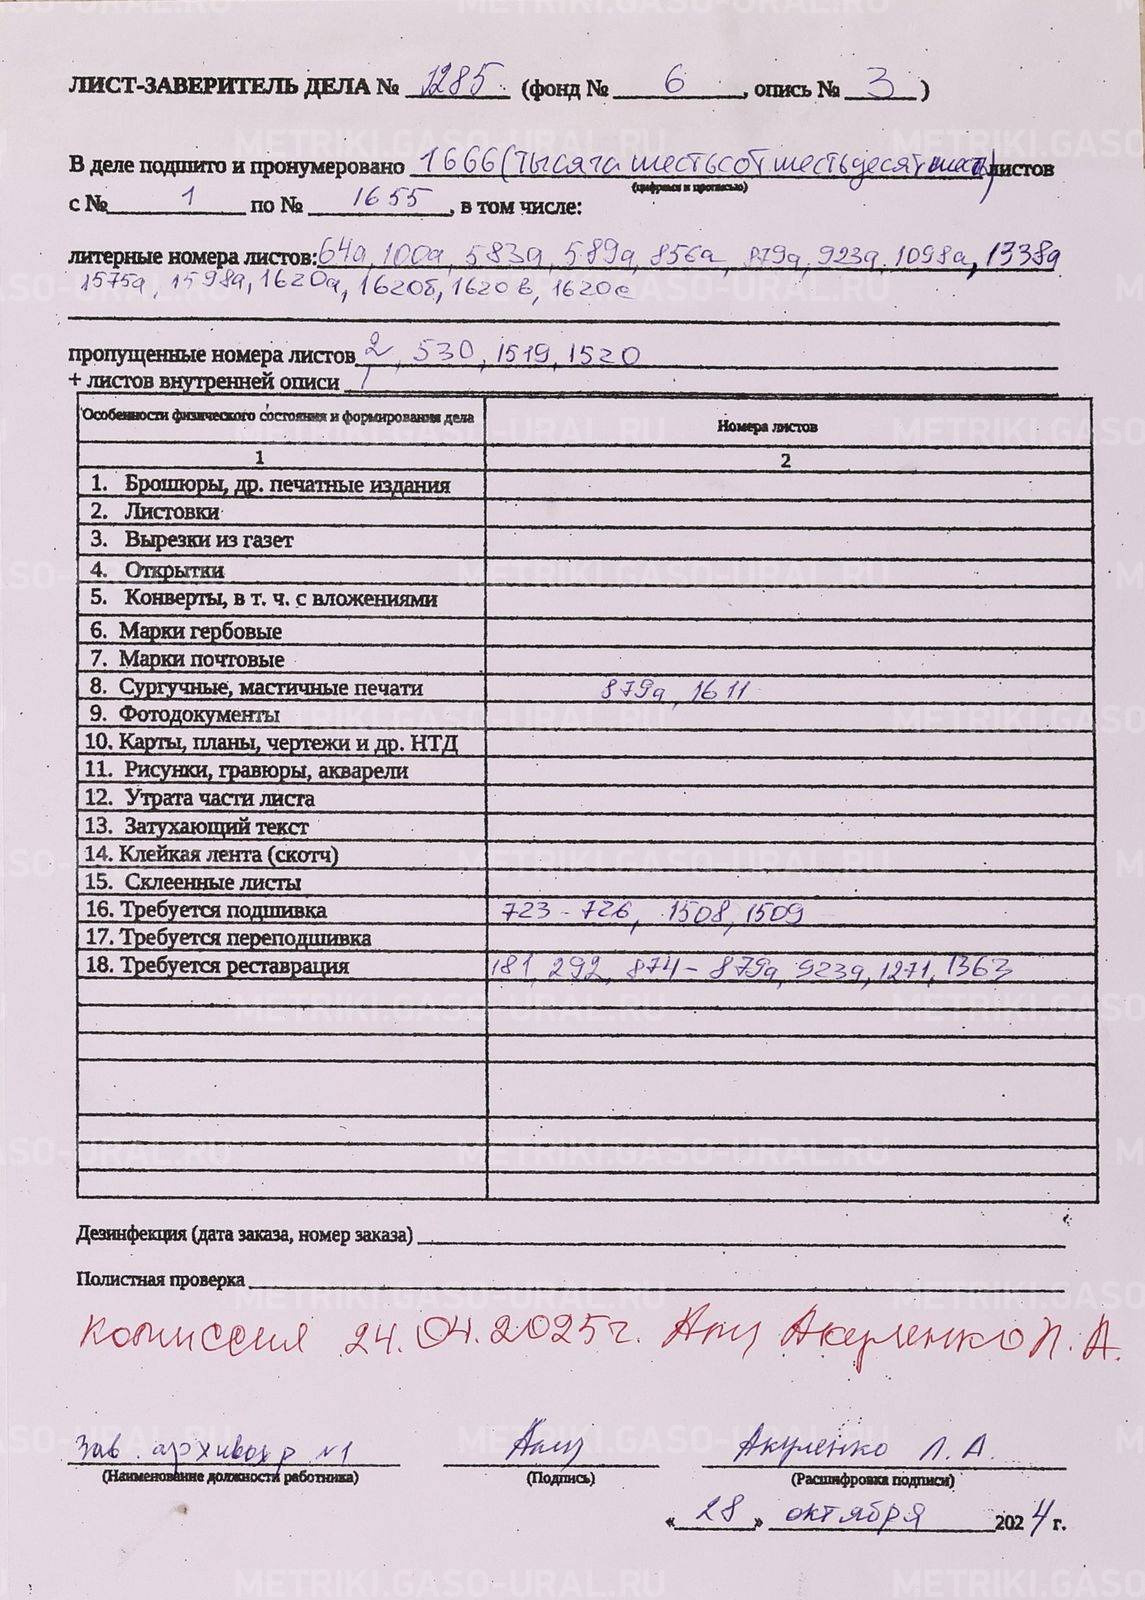 ЛИСТ-ЗАВЕРИТЕЛЬ ДЕЛА № 1285 (фонд № 6, опись № 3)
В деле подшито и пронумеровано 1666 (тысяча шестьсот шестьдесят шесть) листов
(цифрами и прописью)
с № 1 по № 1655, в том числе:
литерные номера листов: 64а, 100а, 583а, 589а, 856а, 879а, 923а, 1098а, 1338а
1575а, 1598а, 1620а, 1620б, 1620в, 1620г
пропущенные номера листов 2, 530, 1519, 1520
+ листов внутренней описи 1
Особенности физического состояния и формирования дела Номера листов
1 2
1. Брошюры, др. печатные издания
2. Листовки
3. Вырезки из газет
4. Открытки
5. Конверты, в т. ч. с вложениями
6. Марки гербовые
7. Марки почтовые
8. Сургучные, мастичные печати 879а, 1611
9. Фотодокументы
10. Карты, планы, чертежи и др. НТД
11. Рисунки, гравюры, акварели
12. Утрата части листа
13. Затухающий текст
14. Клейкая лента (скотч)
15. Склеенные листы
16. Требуется подшивка 723-726, 1508, 1509
17. Требуется переподшивка
18. Требуется реставрация 181, 292, 874-879а, 923а, 1271, 1363
Дезинфекция (дата заказа, номер заказа)
Полистная проверка
Комиссия 24.04.2025г. Акуленко Л.А.
Зав. архивохр №1 Акуленко Л.А.
(Наименование должности работника) (Подпись) (Расшифровка подписи)
«28» октября 2024 г.
METRIKI.GASO-URAL.RU